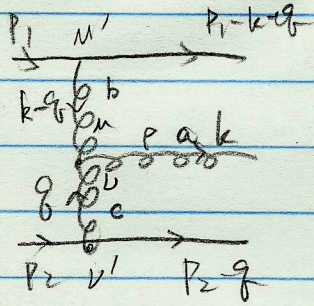 P₁ μ' P₁-k-q
k-q b
μ ρ a k
q ν
c
P₂ ν' P₂-q